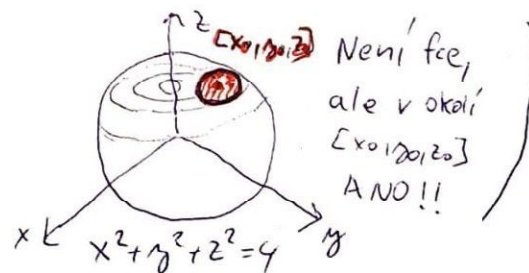 z
[x₀,y₀,z₀]
Není fce,
ale v okolí
[x₀,y₀,z₀]
ANO!!
x
y
x²+y²+z²=4